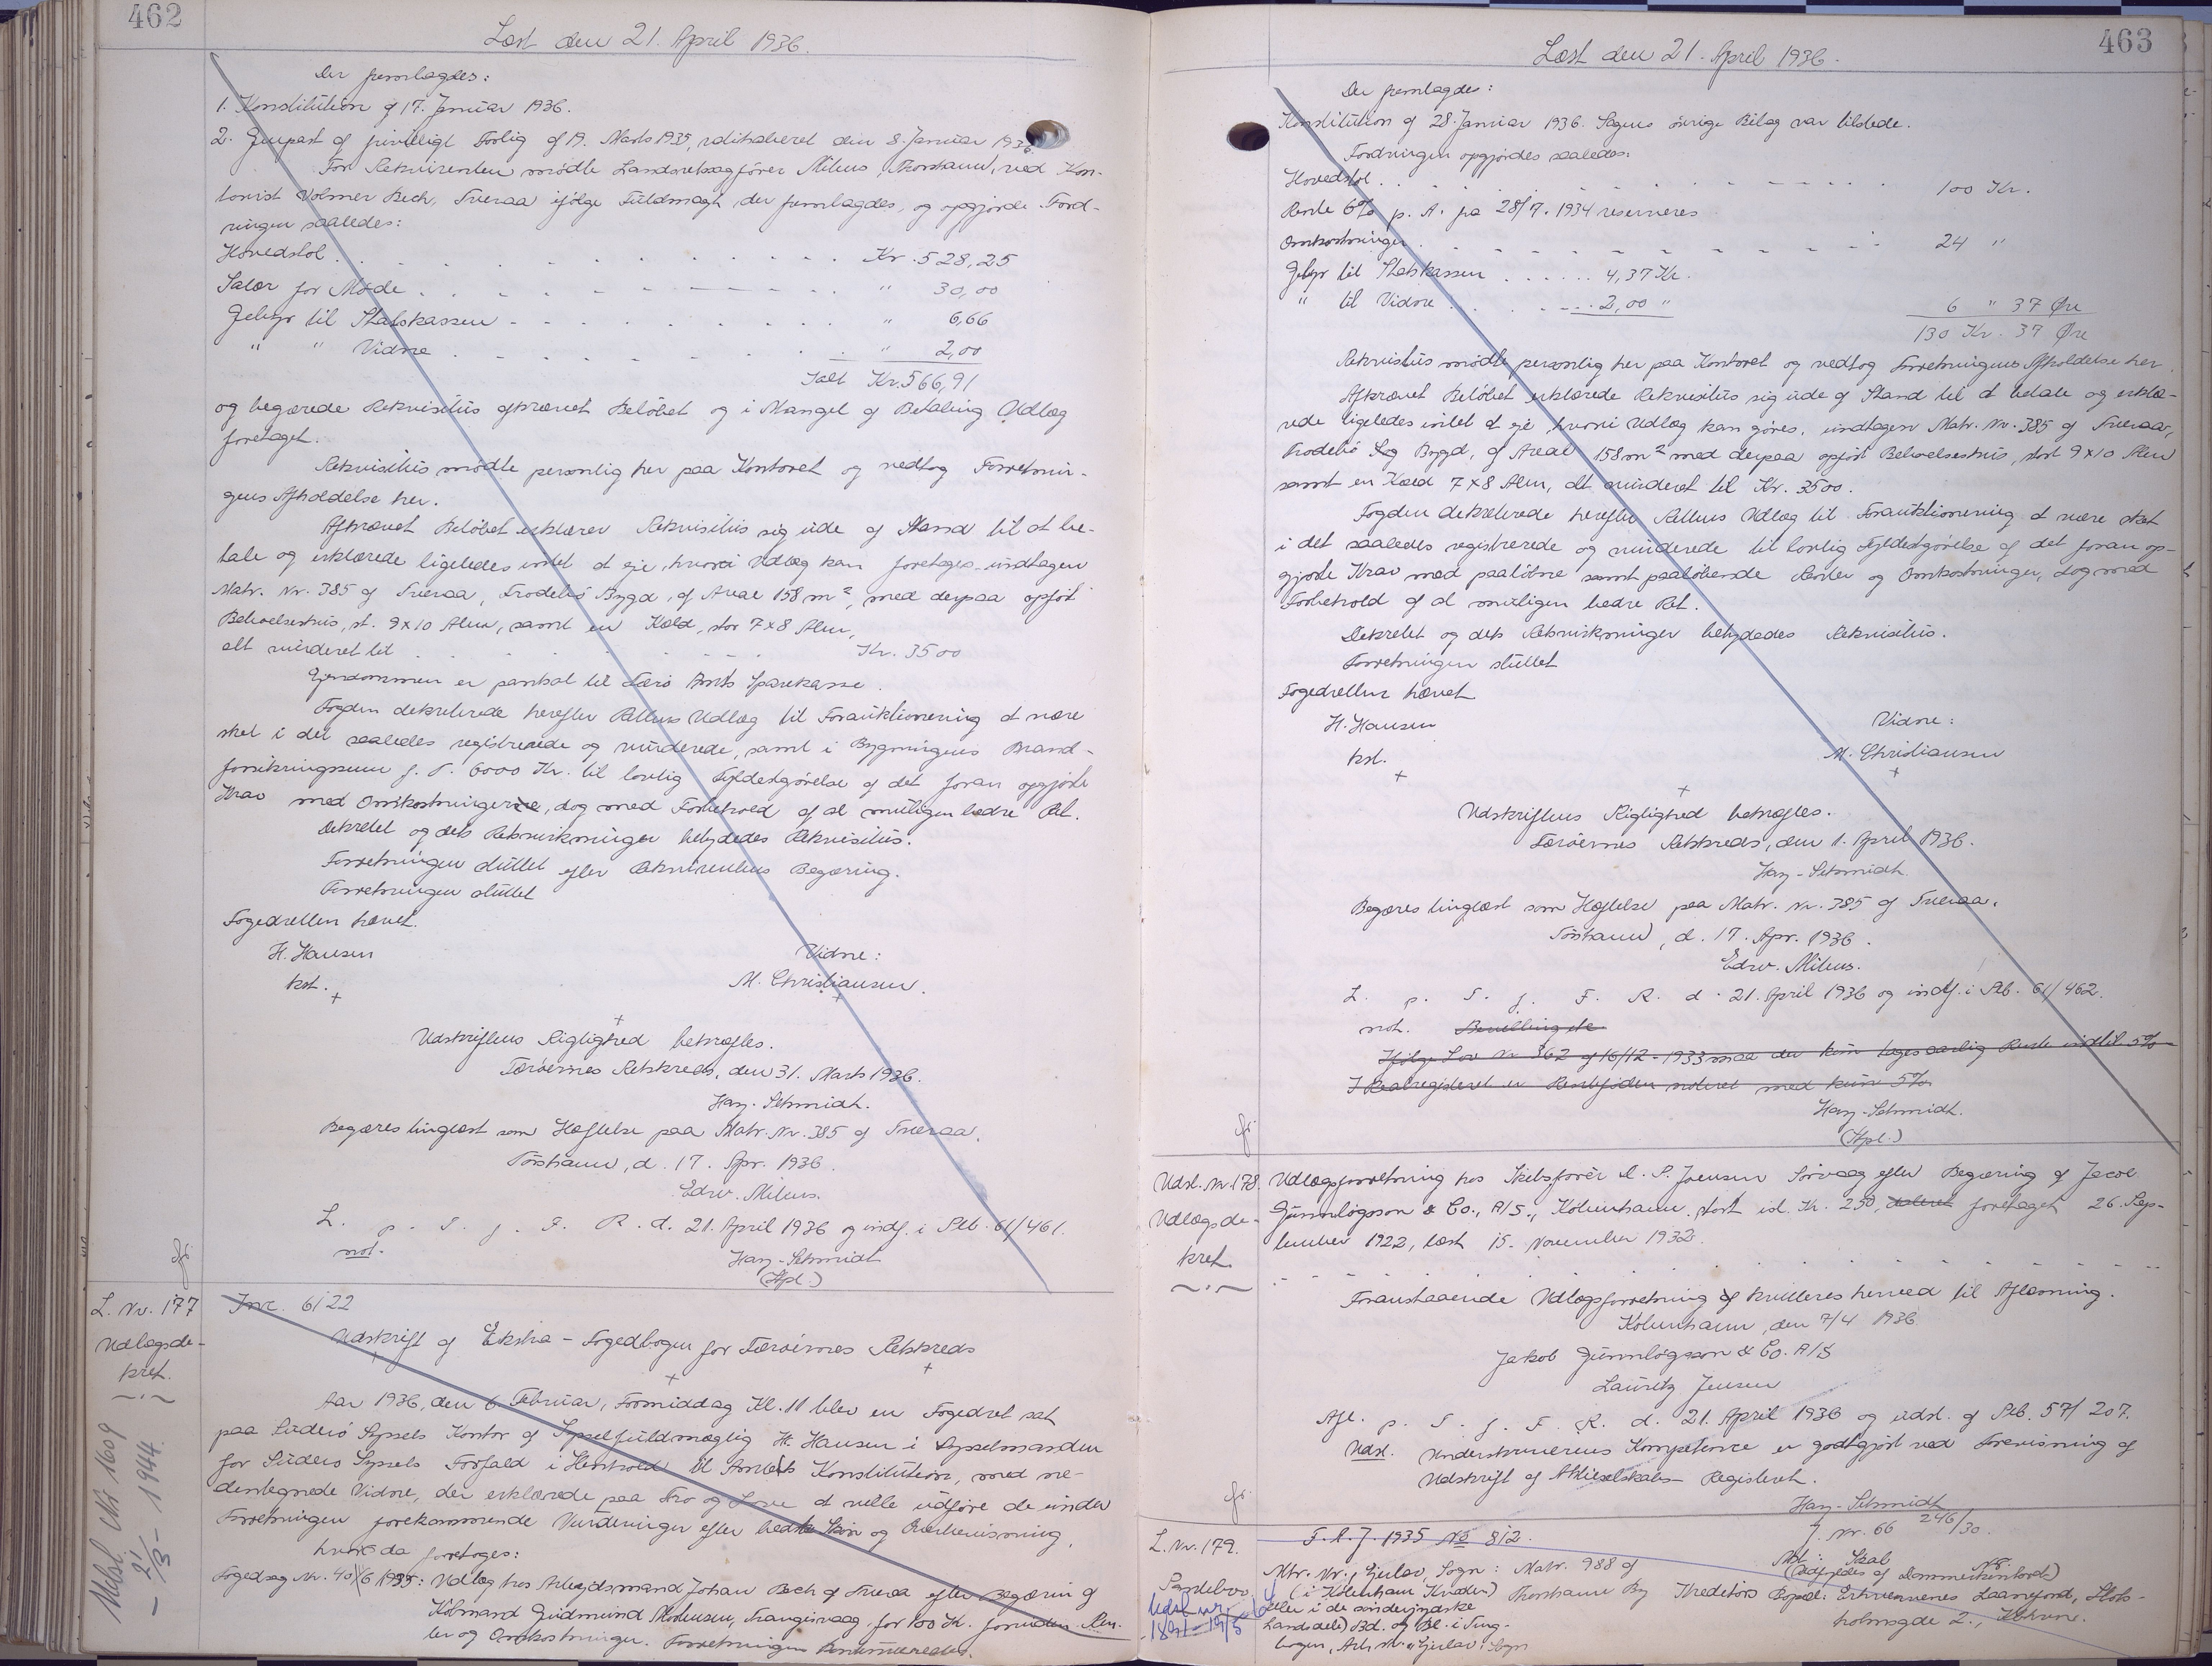 462
Læst den 21. April 1936.
Der fremlagdes:
1. Konstitution af 17. Januar 1936.
2. Genpart af forligt Forlig af 19. Marts 1935, den 8. Januar 1936.
For Rekvirenten mødte Landsretssagfører Mikus, Thorshavn, ved Kon-
torist Volmer Bech, Tveraa ifølge Fuldmagt, der fremlagdes, og opgjorde Ford-
ringen saaledes:
Hovedstol . . . . . Kr. 528,25
Salær for Møde . . . . . " 30,00
Gebyr til Statskassen . . . . . " 6,66
" " Vidne . . . . . " 2,00
Ialt Kr. 566,91
og begærede Rekvisitus afkrævet Beløbet og i Mangel af Betaling Udlæg
foretaget.
Rekvisitus mødte personlig her paa Kontoret og vedtog Forretnin-
gens Afholdelse her.
Afkrævet Beløbet erklærer Rekvisitus sig ude af Stand til at be-
tale og erklærede ligeledes intet at eje, hvori Udlæg kan foretages undtagen
Matr. Nr. 385 af Tveraa, Frodebø Bygd, af Areal 158 m², med derpaa opført
Beboelseshus, st. 9x10 Alen, samt en Kæld, stor 7x8 Alen,
alt vurderet til . . . . . Kr. 3500
Ejendommen er pantsat til Færø Amts Sparekasse.
Fogden dekreterede herefter Rettens Udlæg til Forauktionering at være
sket i det saaledes registrerede og vurderede, samt i Bygningens Brand-
forsikringssum f. T. 6000 Kr. til lovlig Fyldestgørelse af det foran opgjorte
Krav med Omkostningerne, dog med Forbehold af al muligen bedre Ret.
Dekretet og dets Retsvirkninger betydedes Rekvisitus.
Forretningen sluttet efter Rekvirentens Begæring.
Forretningen sluttet
Fogedretten hævet.
H. Hansen Vidne:
kst. M. Christiansen.
+ +
+
Udskriftens Rigtighed bekræftes.
Færøernes Retskreds, den 31. Marts 1936.
Hay-Schmidt.
Begæres tinglæst som Hæftelse paa Matr. Nr. 385 af Tveraa.
Tórshavn, d. 17. Apr. 1936.
Edw. Mikus.
L. p. T. f. F. R. d. 21. April 1936 og indf. i Ptb. 61/461.
not.
Hay-Schmidt
(Kpl.)
L. Nr. 177
Udlægsde-
kret.
Udsl. Nr 1609
- 21/3 - 1944
Jnr. 6122
Udskrift af Ekstra-Fogedbogen for Færøernes Retskreds
+ + +
Aar 1936, den 6. Februar, Formiddag Kl. 11 blev en Fogedret sat
paa Suderø Syssels Kontor af Sysselfuldmægtig H. Hansen i Sysselmanden
for Suderø Syssels Forfald i Henhold til Amtets Konstitution, med ne-
dentegnede Vidne, der erklærede paa Tro og Love at ville udføre de under
Forretningen forekommende Vurderinger efter bedste Skøn og Overbevisning,
hvor da foretoges:
Fogedsag Nr. 40 1935: Udlæg hos Arbejdsmand Johan Bech af Tveraa efter Begæring af
Købmand Gudmund Mortensen, Trangisvaag, for 100 Kr. foruden Ren-
ter og Omkostninger. Forretningen
463
Læst den 21. April 1936.
Der fremlagdes:
Konstitution af 28. Januar 1936. Sagens øvrige Bilag var tilstede.
Fordringen opgjordes saaledes:
Hovedstol . . . . . 100 Kr.
Rente 6% p. A. fra 28/7. 1934 reserveres
Omkostninger . . . . . 24 "
Gebyr til Statskassen . . . . . 4,37 Kr.
" til Vidne . . . . . 2,00 " 6 " 37 Øre
130 Kr. 37 Øre
Rekvisitus mødte personlig her paa Kontoret og vedtog Forretningens Afholdelse her.
Afkrævet Beløbet erklærede Rekvisitus sig ude af Stand til at betale og erklæ-
rede ligeledes intet at eje, hvori Udlæg kan gøres, undtagen Matr. Nr. 385 af Tveraa,
Frodebø Bygd, af Areal 158 m² med derpaa opført Beboelseshus, stort 9x10 Alen
samt en Kæld 7x8 Alen, alt vurderet til Kr. 3500.
Fogden dekreterede herefter Rettens Udlæg til Forauktionering at være sket
i det saaledes registrerede og vurderede til lovlig Fyldestgørelse af det foran op-
gjorte Krav med paaløbne samt paaløbende Renter og Omkostninger, dog med
Forbehold af al muligen bedre Ret.
Dekretet og dets Retsvirkninger betydedes Rekvisitus.
Forretningen sluttet
Fogedretten hævet
H. Hansen Vidne:
kst. M. Christiansen
+ +
+
Udskriftens Rigtighed bekræftes.
Færøernes Retskreds, den 1. April 1936.
Hay-Schmidt.
Begæres tinglæst som Hæftelse paa Matr. Nr. 385 af Tveraa.
Tórshavn, d. 17. Apr. 1936.
Edw. Mikus.
L. p. T. f. F. R. d. 21. April 1936 og indf. i Ptb. 61/462.
not.
Ifølge Lov Nr 362 af 16/12-1933 maa der kun tages aarlig Rente indtil 5%
I Realregisteret er Rentefoden noteret med kun 5%
Hay-Schmidt.
(Kpl.)
Udsl. Nr. 178.
Udlægsde-
kret.
Udlægsforretning hos Skibsfører D. P. Joensen Sørvaag efter Begæring af Jacob
Gunnløgsson & Co., A/S., København, stort isl. Kr. 250, foretaget 26. Sep-
tember 1922, læst 15. November 1932.
Foranstaaende Udlægsforretning kvitteres herved til Aflæsning.
København, den 7/4 1936
Jakob Gunnløgsson & Co. A/S
Lauritz Jensen
Afl. p. T. f. F. R. d. 21. April 1936 og udsl. af Ptb. 57/207.
Udsl. Underskriverens Kompetence er godtgjort ved Forevisning af
Udskrift af Aktieselskabs-Registeret.
Hay-Schmidt
L. Nr. 179.
F. A. J. 1935 No 812. J. Nr. 66 246/30.
Mtr. Nr., Ejerlav, Sogn: Matr. 988 af
(i København Kvarter) Thorshavn By
eller i de sønderjydske
Landsdele) Bd. og Bl. i Ting-
bogen, Art. Nr., Ejerlav, Sogn
(Udfyldes af Dommerkontoret)
Kreditors Bopæl: Erhvervenes Laanefond, Slots-
holmsgde 2., Købhvn.